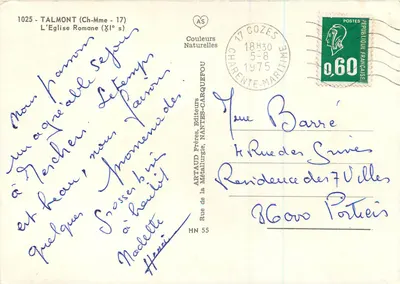 1025 - TALMONT (Ch-Mme - 17)
L'Eglise Romane (XIe s)
AS
Couleurs
Naturelles
Nous passons
un agréable séjour
à Meschers. Le temps
est beau, nous faisons
quelques promenades.
Grosses bises
à bientôt
Nadette
Henri
ARTAUD Frères, Editeurs
Rue de la Métallurgie, NANTES-CARQUEFOU
HN 55
17 COZES
18H30
5-8
1975
CHARENTE-MARITIME
POSTES
0,60
REPUBLIQUE FRANÇAISE
Mme Barré
4 Rue des Grives
Residence des 7 Villes
86000 Poitiers